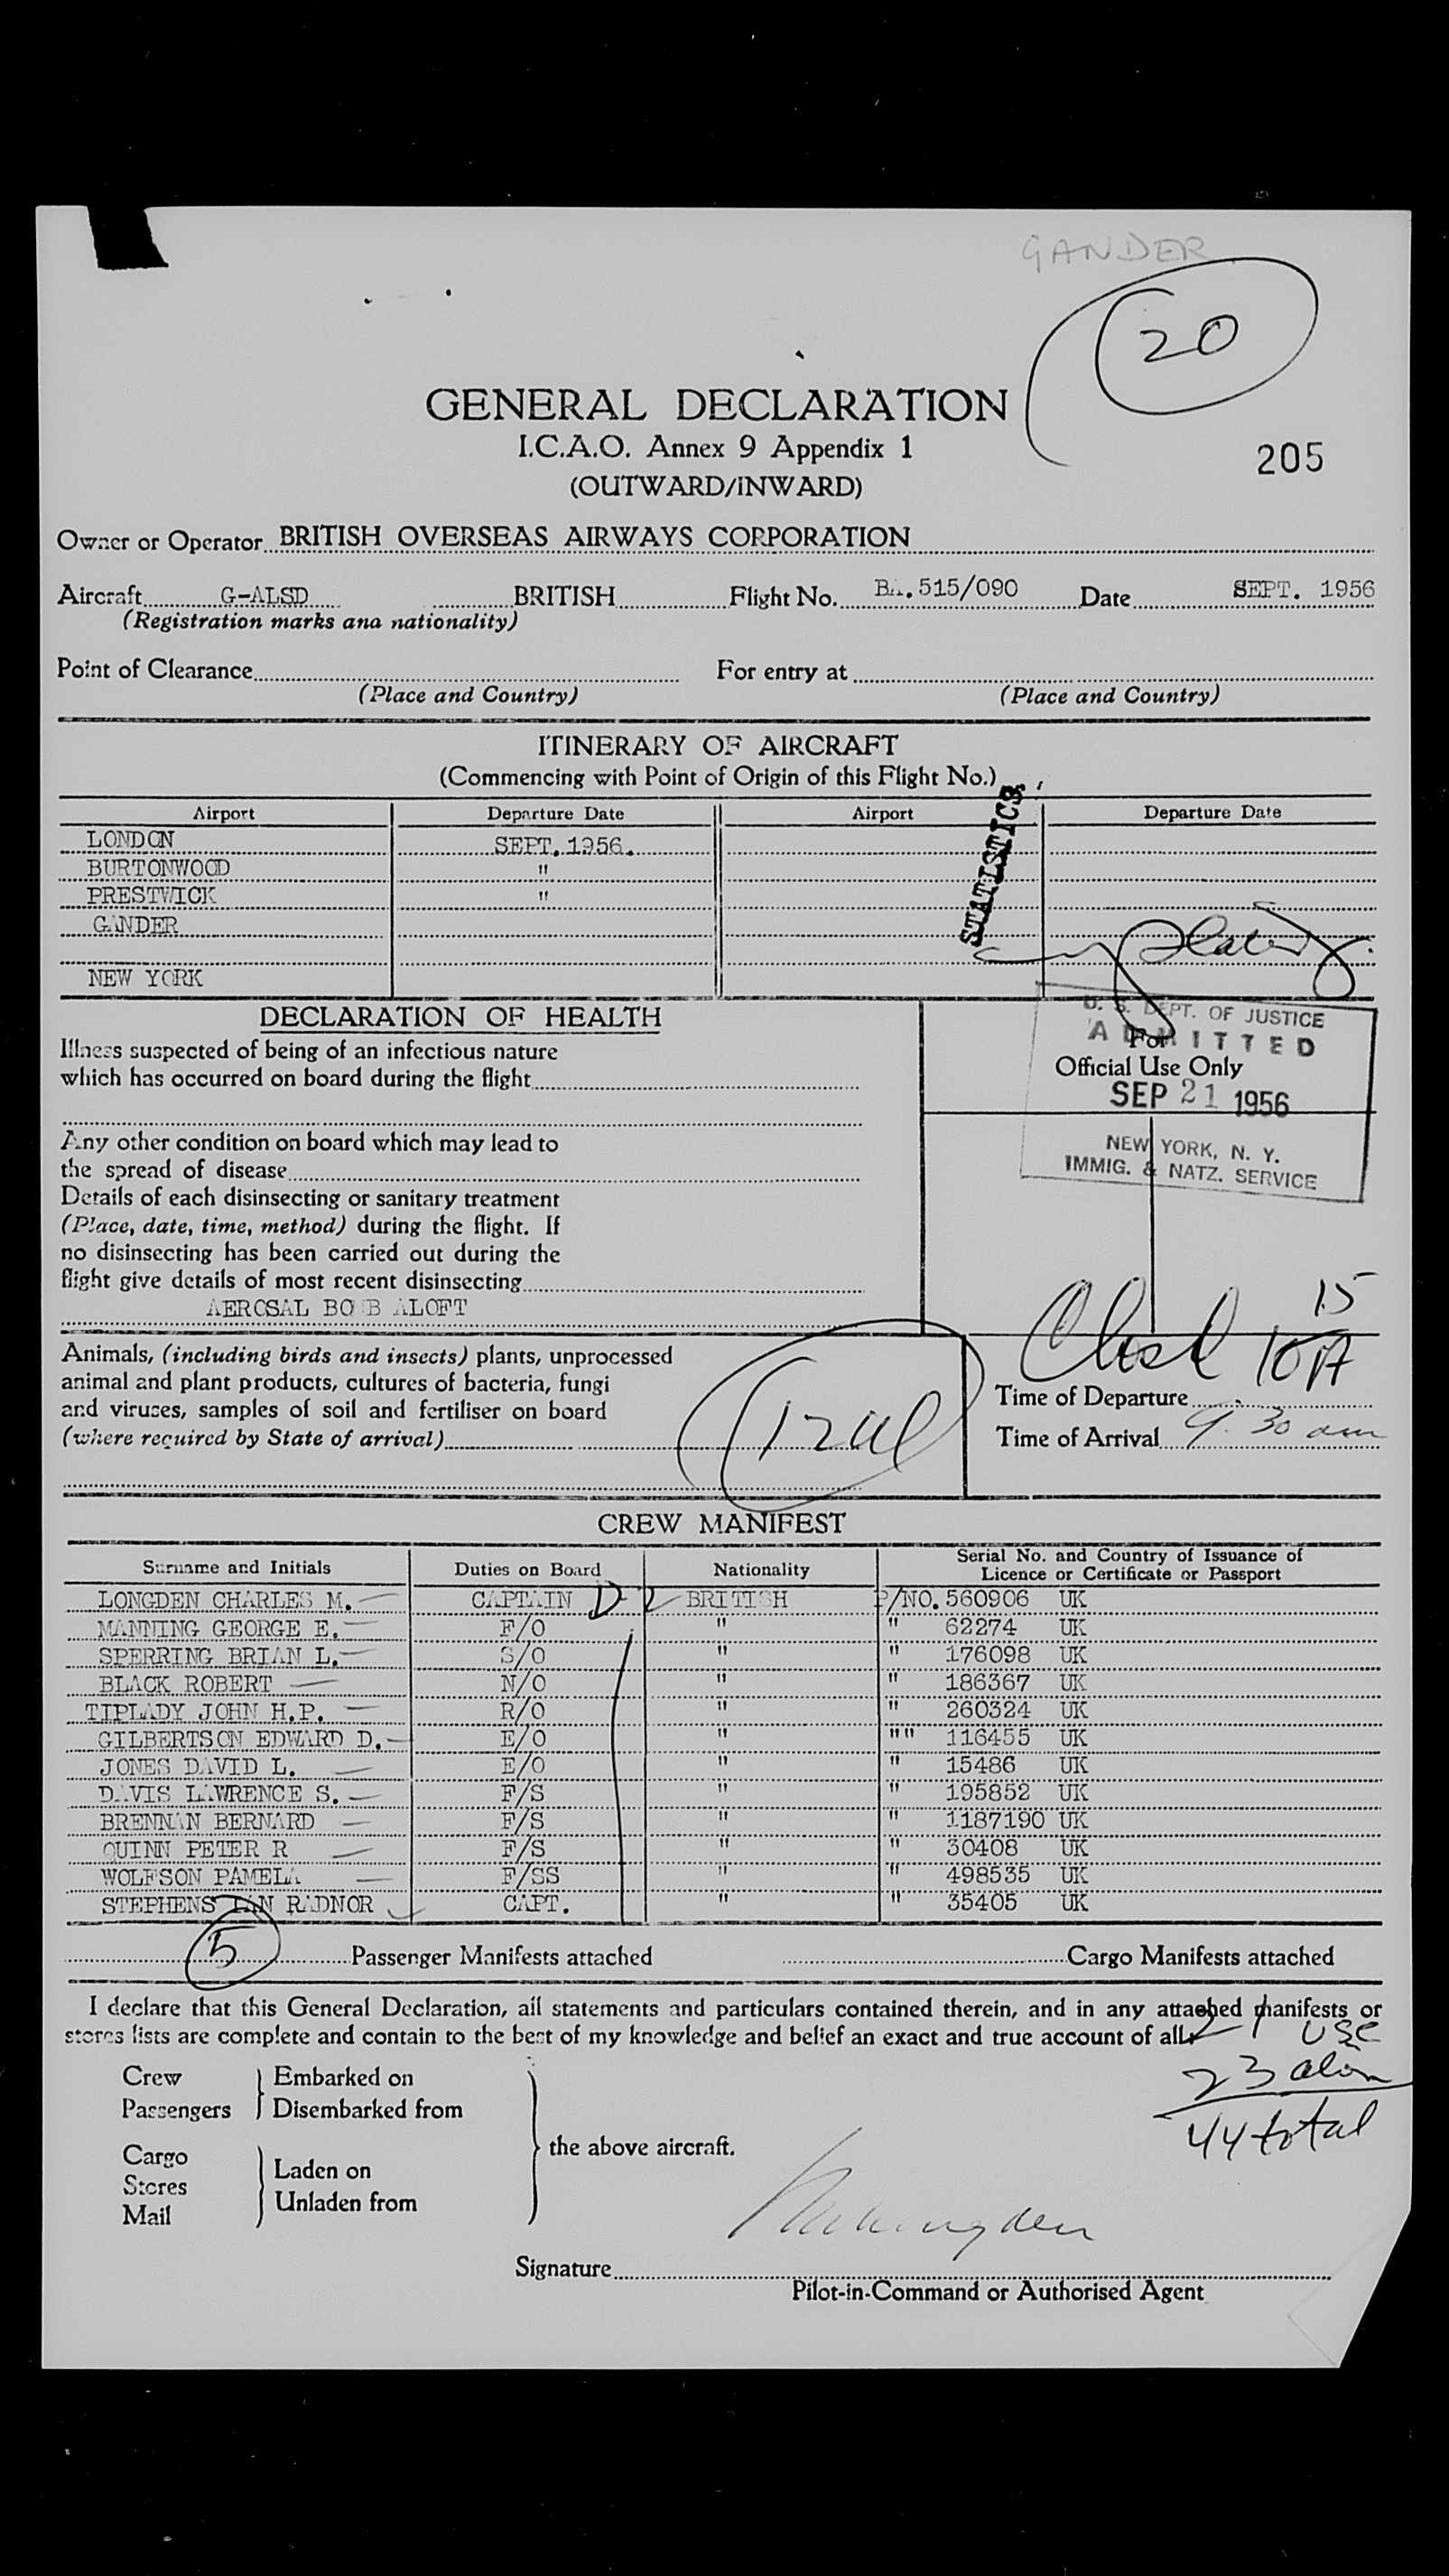 GANDER
20
GENERAL DECLARATION
I.C.A.O. Annex 9 Appendix 1
205
(OUTWARD/INWARD)
Owner or Operator BRITISH OVERSEAS AIRWAYS CORPORATION
Aircraft G-ALSD BRITISH Flight No. BA.515/090 Date SEPT. 1956
(Registration marks and nationality)
Point of Clearance For entry at
(Place and Country) (Place and Country)
ITINERARY OF AIRCRAFT
(Commencing with Point of Origin of this Flight No.)
STATISTICS
Airport Departure Date Airport Departure Date
LONDON SEPT. 1956.
BURTONWOOD "
PRESTWICK "
GANDER
NEW YORK
DECLARATION OF HEALTH
Illness suspected of being of an infectious nature
which has occurred on board during the flight
Any other condition on board which may lead to
the spread of disease
Details of each disinsecting or sanitary treatment
(Place, date, time, method) during the flight. If
no disinsecting has been carried out during the
flight give details of most recent disinsecting
AEROSAL BOMB ALOFT
U. S. DEPT. OF JUSTICE
ADMITTED
For
Official Use Only
SEP 21 1956
NEW YORK, N. Y.
IMMIG. & NATZ. SERVICE
Animals, (including birds and insects) plants, unprocessed
animal and plant products, cultures of bacteria, fungi
and viruses, samples of soil and fertiliser on board
(where required by State of arrival)
15
10
Time of Departure
Time of Arrival 9.30 am
CREW MANIFEST
Surname and Initials Duties on Board Nationality Serial No. and Country of Issuance of Licence or Certificate or Passport
LONGDEN CHARLES M. CAPTAIN BRITISH P/NO. 560906 UK
MANNING GEORGE E. F/O " " 62274 UK
SPERRING BRIAN L. S/O " " 176098 UK
BLACK ROBERT N/O " " 186367 UK
TIPLADY JOHN H.P. R/O " " 260324 UK
GILBERTSON EDWARD D. E/O " "" 116455 UK
JONES DAVID L. E/O " " 15486 UK
DAVIS LAWRENCE S. F/S " " 195852 UK
BRENNAN BERNARD F/S " " 1187190 UK
QUINN PETER R F/S " " 30408 UK
WOLFSON PAMELA F/SS " " 498535 UK
STEPHENS IAN RADNOR CAPT. " " 35405 UK
5 Passenger Manifests attached Cargo Manifests attached
I declare that this General Declaration, all statements and particulars contained therein, and in any attached manifests or
stores lists are complete and contain to the best of my knowledge and belief an exact and true account of all
21 USC
23 alien
44 total
Crew Embarked on
Passengers Disembarked from
the above aircraft.
Cargo
Stores Laden on
Mail Unladen from
Signature
Pilot-in-Command or Authorised Agent